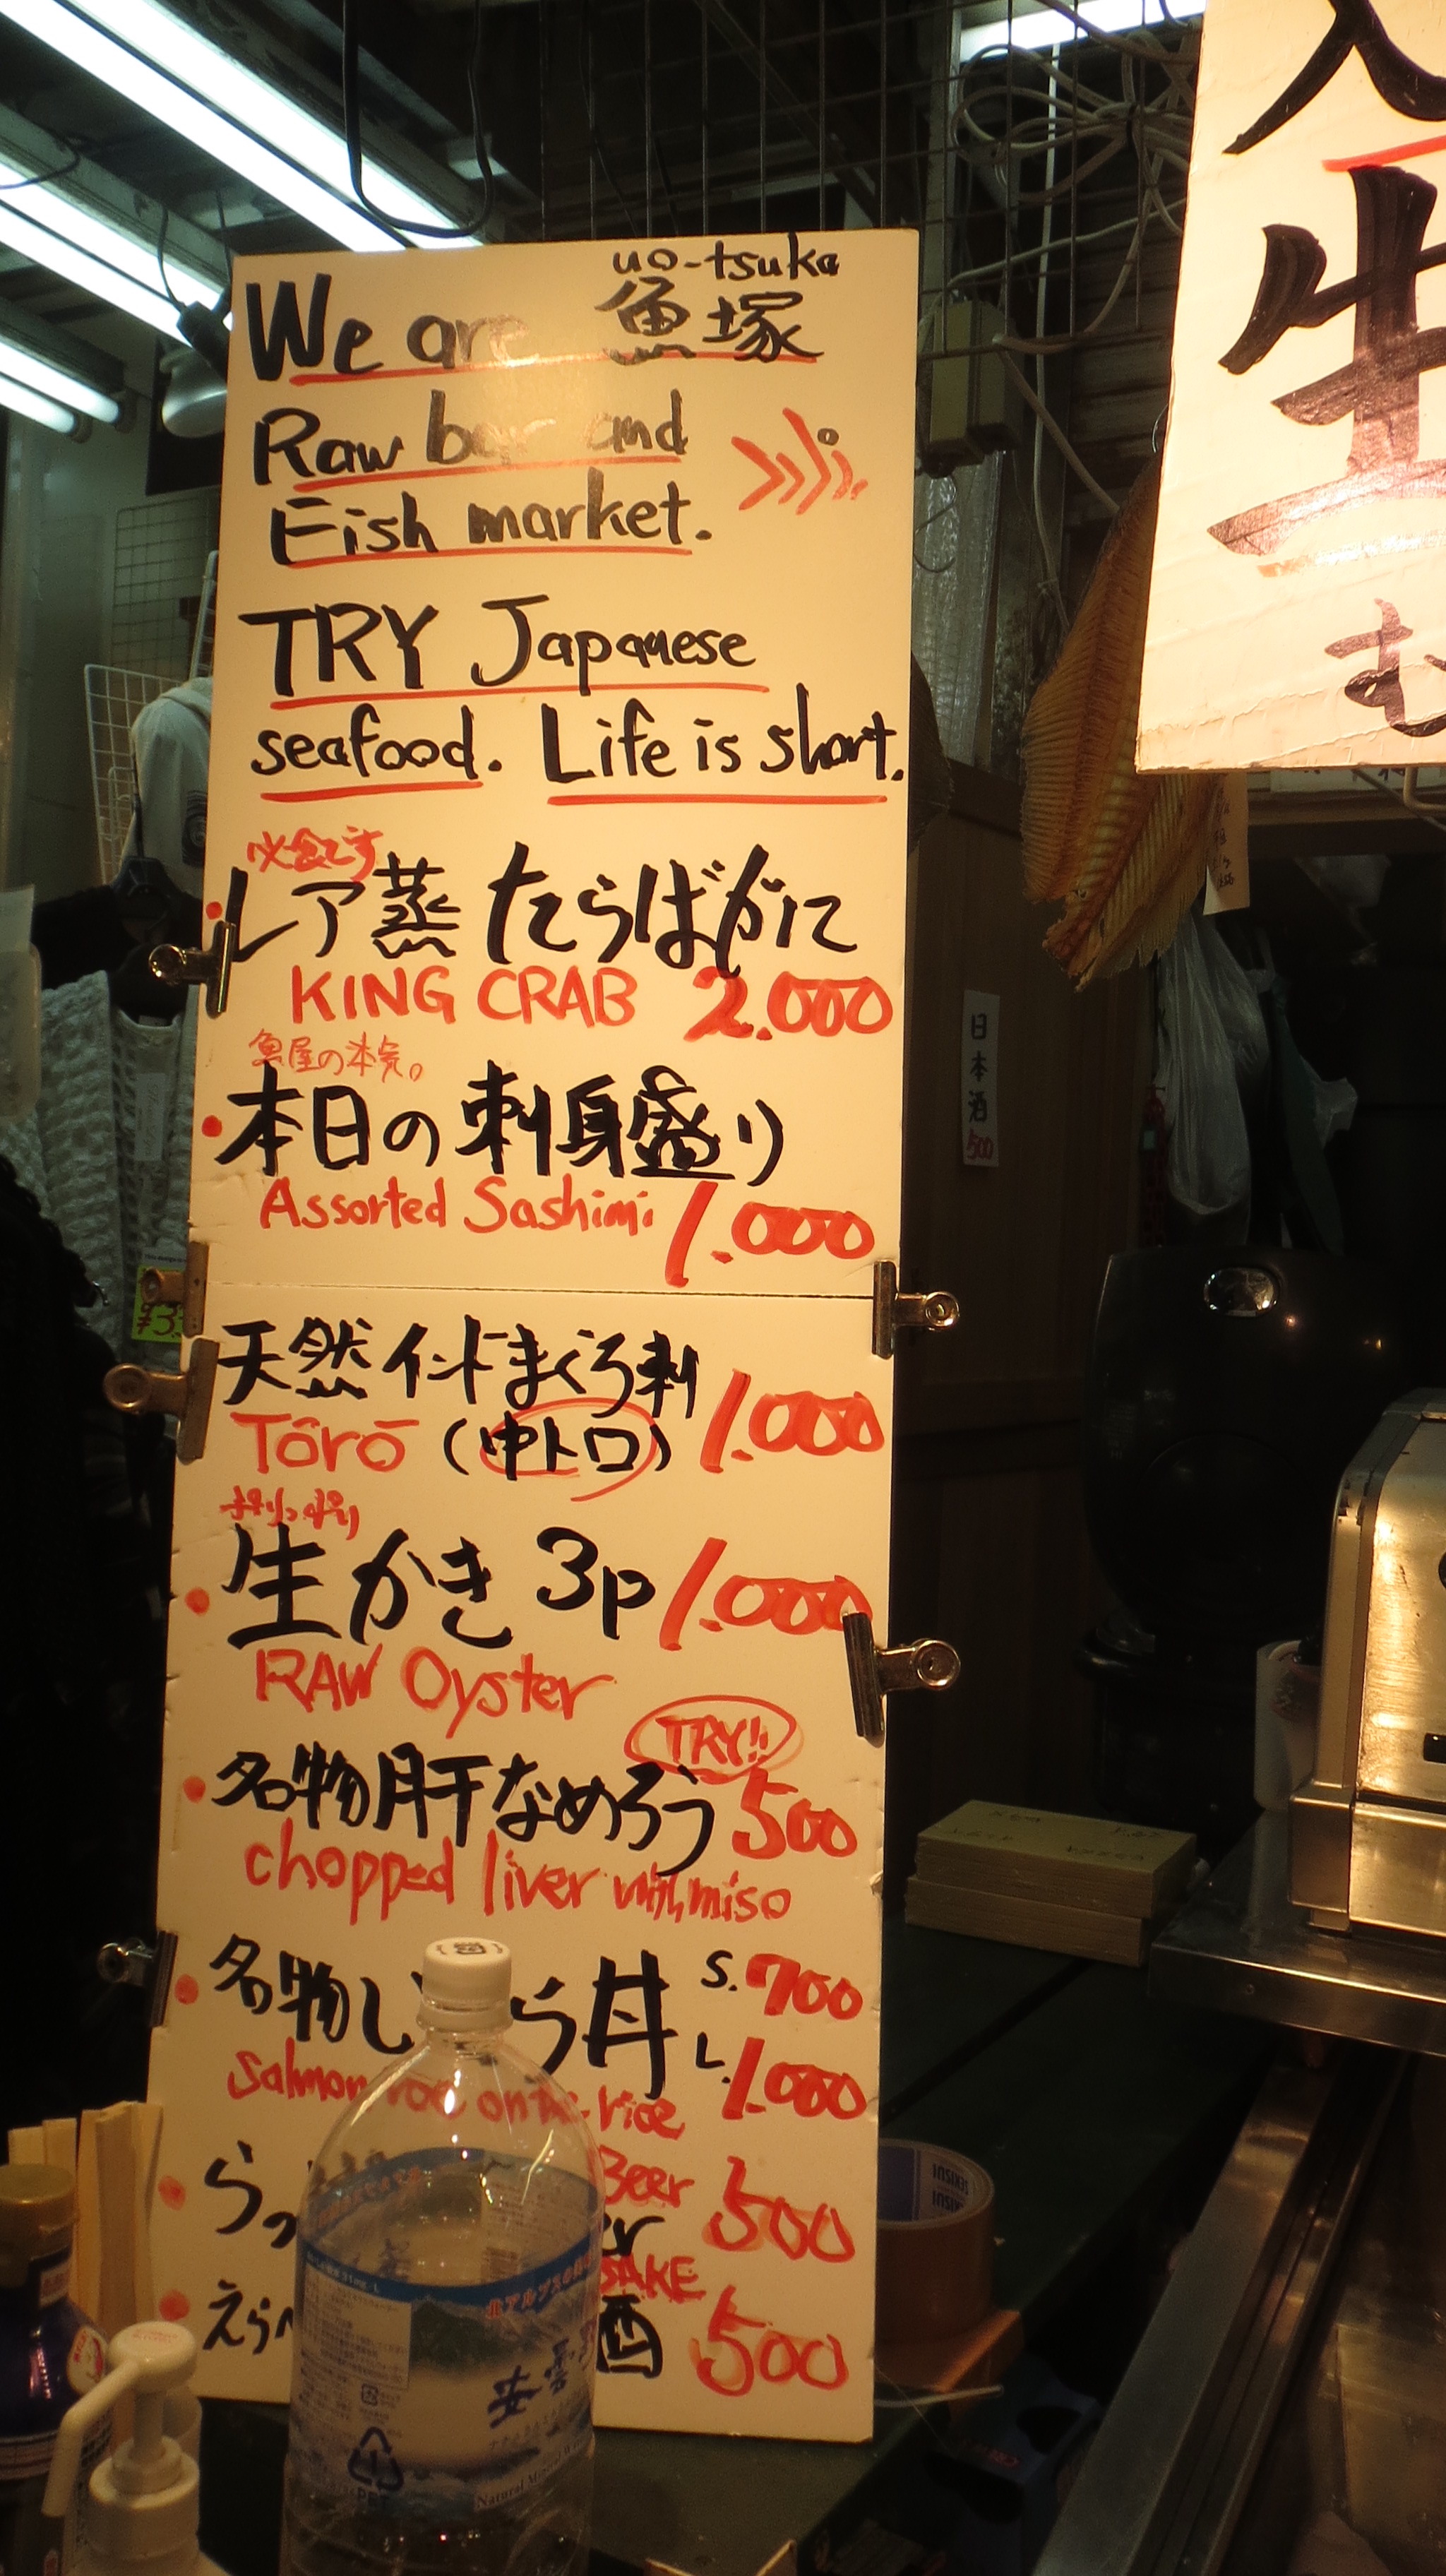 uo-tsuka
We are 魚塚
Raw bar and
Fish market.
TRY Japanese
seafood. Life is short.
必食です
レア蒸 たらばがに
KING CRAB 2.000
魚屋の本気。
本日の刺身盛り
Assorted Sashimi 1.000
天然インドまぐろ刺
Tôrō (中トロ) 1.000
生かき 3p 1.000
RAW Oyster
TRY!!
名物肝なめろう 500
chopped liver with miso
名物い ら丼 S. 700
L. 1.000
salmon roe on the rice
Beer
らっ er 500
SAKE
えら 酒 500
日本酒
500
入
生
む
北アルプス
安曇野
Natural Mineral
PET